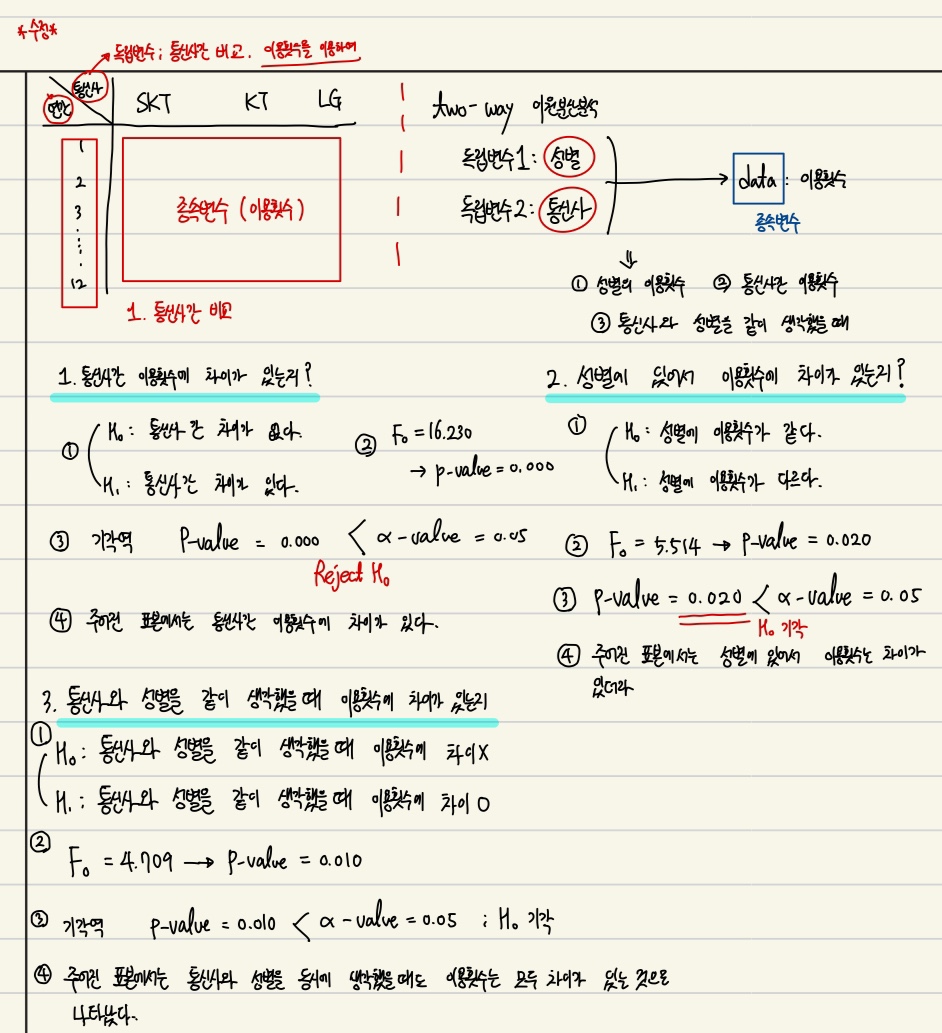 *수정*
독립변수; 통신사간 비교. 이용횟수를 이용하여
통신사
SKT KT LG
1
2
3
12
종속변수 (이용횟수)
1. 통신사간 비교
two-way 이원분산분석
독립변수1: 성별
독립변수2: 통신사
data : 이용횟수
종속변수
① 성별의 이용횟수 ② 통신사간 이용횟수
③ 통신사와 성별을 같이 생각했을 때
1. 통신사간 이용횟수에 차이가 있는지?
① H₀: 통신사 간 차이가 없다.
H₁: 통신사간 차이가 있다.
② F₀ = 16.230
→ p-value = 0.000
③ 기각역 P-value = 0.000 < α-value = 0.05
Reject H₀
④ 주어진 표본에서는 통신사간 이용횟수에 차이가 있다.
2. 성별에 있어서 이용횟수에 차이가 있는지?
① H₀: 성별에 이용횟수가 같다.
H₁: 성별에 이용횟수가 다르다.
② F₀ = 5.514 → p-value = 0.020
③ p-value = 0.020 < α-value = 0.05
H₀ 기각
④ 주어진 표본에서는 성별에 있어서 이용횟수는 차이가
있더라
3. 통신사와 성별을 같이 생각했을 때 이용횟수에 차이가 있는지
① H₀: 통신사와 성별을 같이 생각했을 때 이용횟수에 차이X
H₁: 통신사와 성별을 같이 생각했을 때 이용횟수에 차이 O
② F₀ = 4.709 → P-value = 0.010
③ 기각역 p-value = 0.010 < α-value = 0.05 ; H₀ 기각
④ 주어진 표본에서는 통신사와 성별을 동시에 생각했을 때도 이용횟수는 모두 차이가 있는 것으로
나타났다.